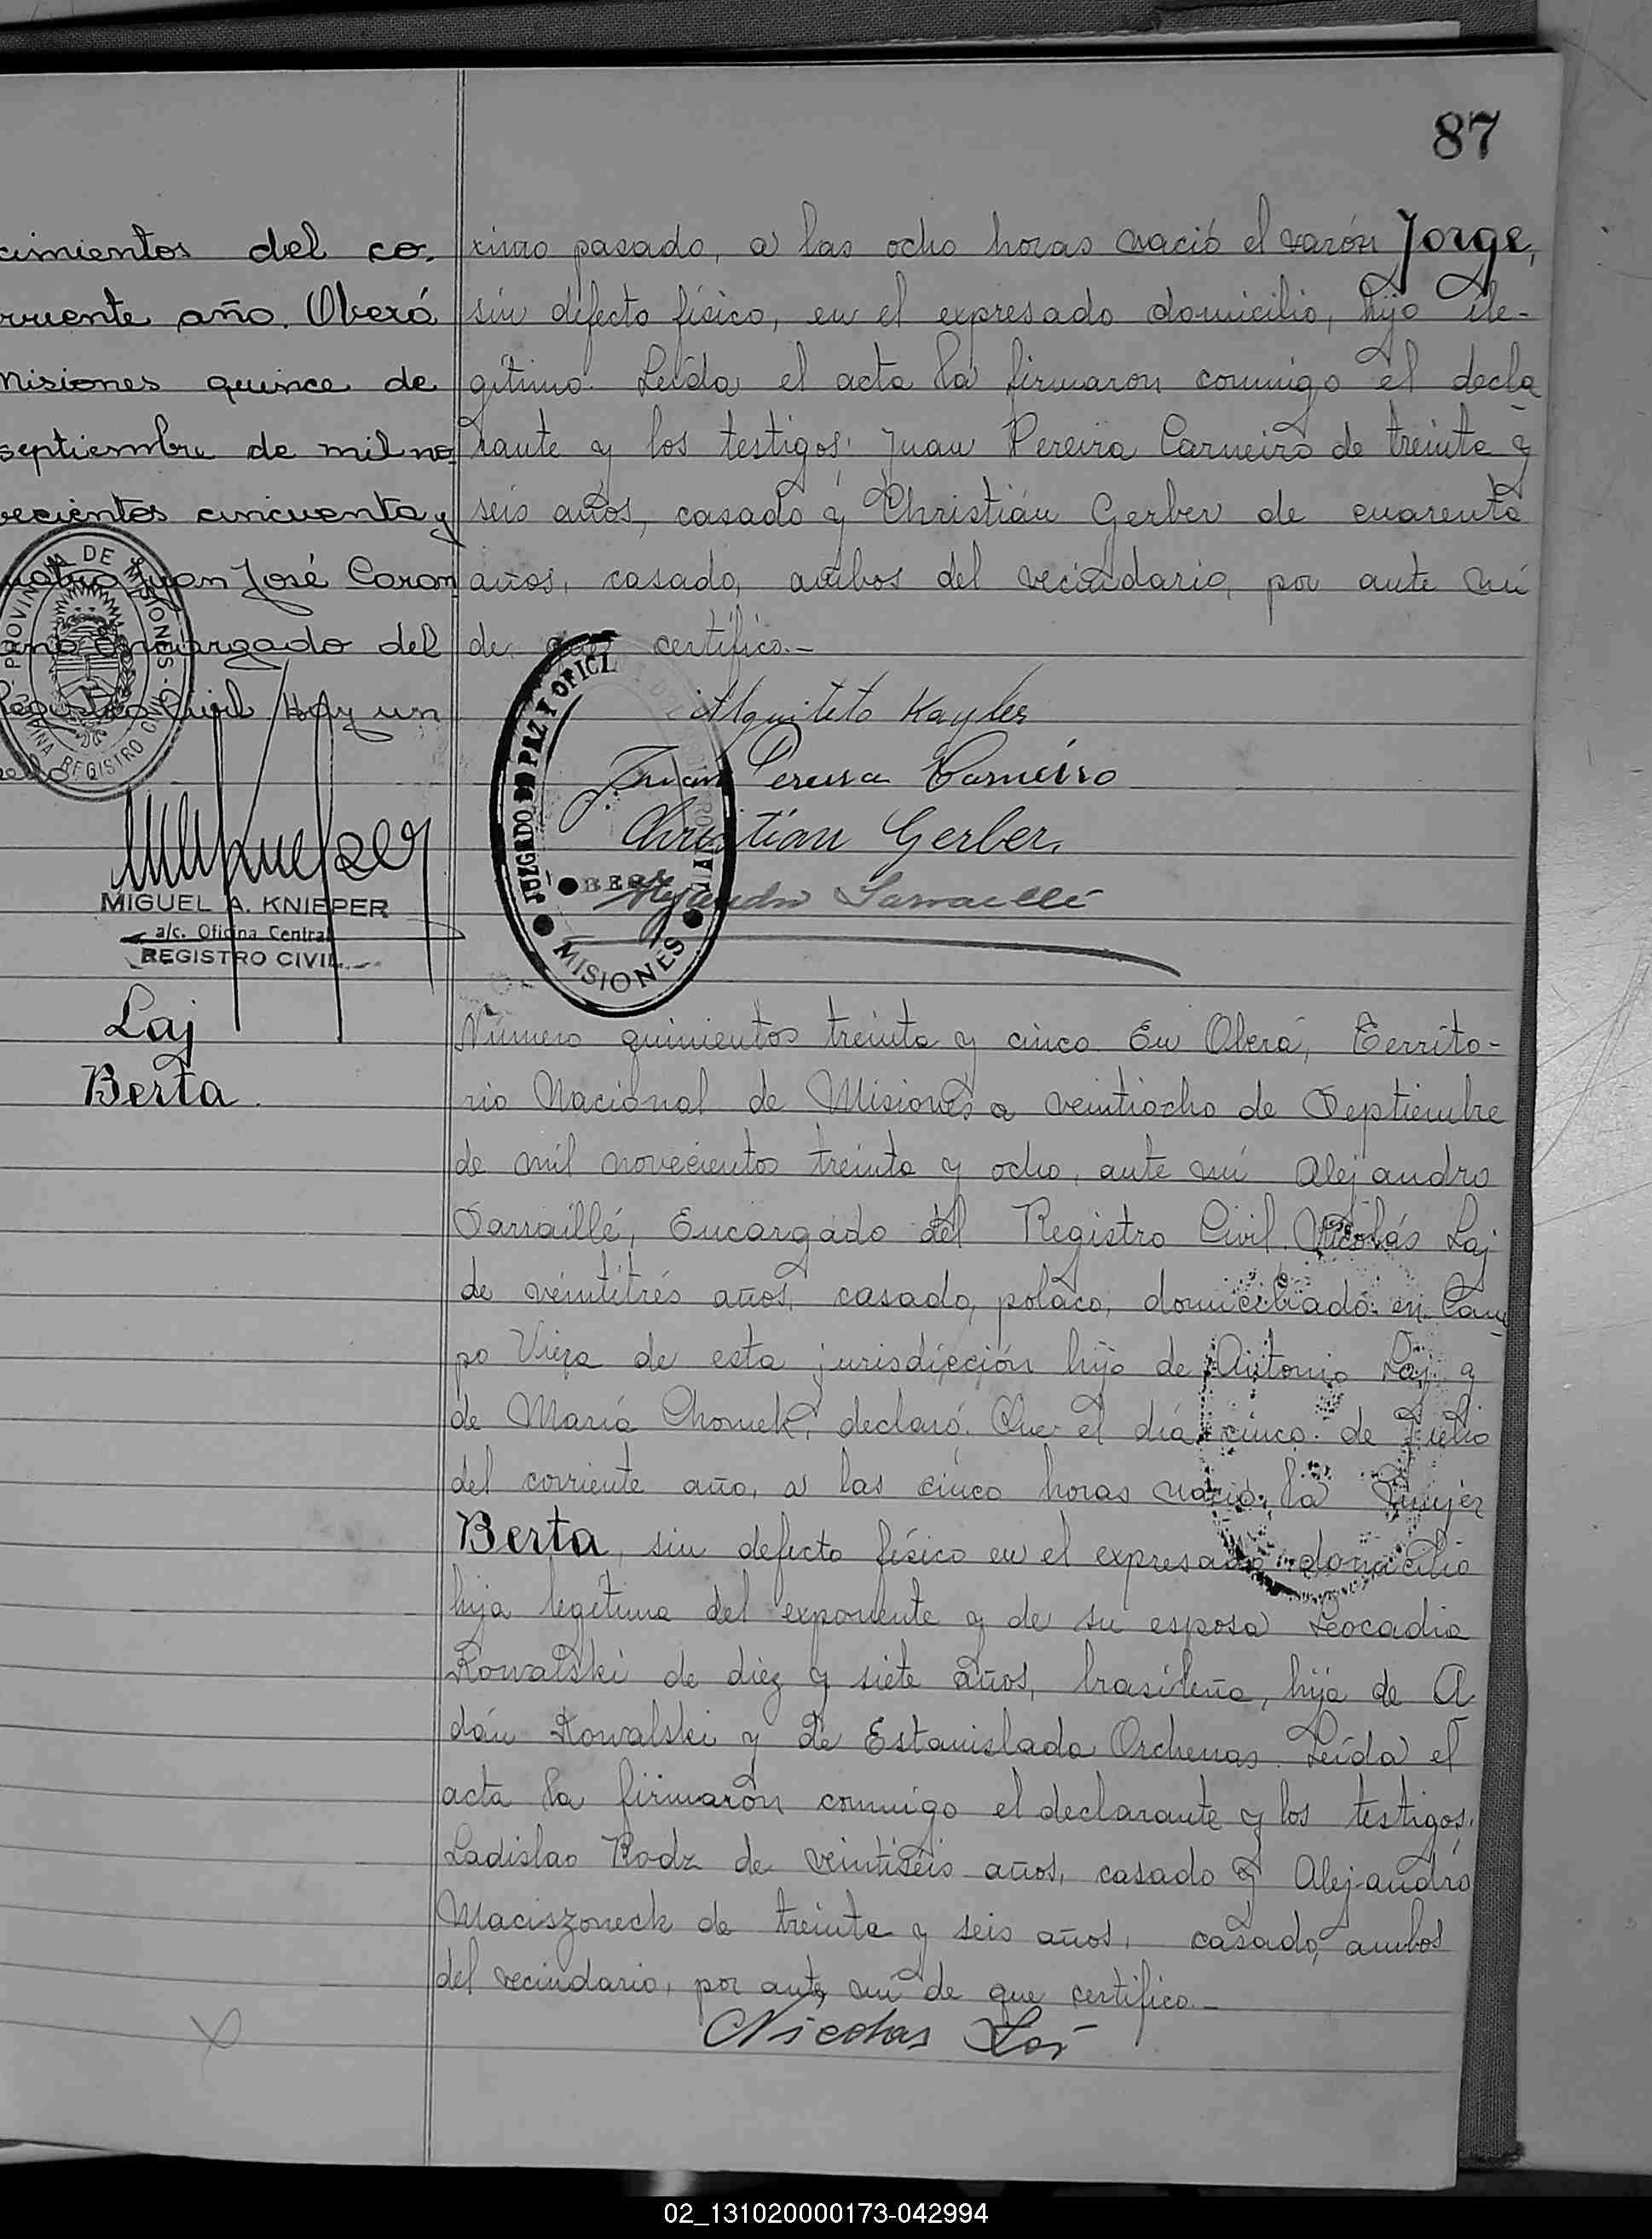 87
cimientos del co-
rriente año. Oberá
Misiones quince de
septiembre de mil no-
vecientos cincuenta y
cuatro Juan José Caram
encargado del
Registro Civil Hay un
sello
PROVINCIA DE MISIONES
REGISTRO CIVIL
MIGUEL A. KNIEPER
a/c. Oficina Central
REGISTRO CIVIL
ximo pasado, a las ocho horas nació el varón Jorge,
sin defecto físico, en el expresado domicilio, hijo ile-
gítimo. Leída el acta la firmaron conmigo el decla
rante y los testigos: Juan Pereira Carneiro de treinta y
seis años, casado y Christián Gerber de cuarenta
años, casado, ambos del vecindario, por ante mí
de que certifico.-
Kayler
Juan Pereira Carneiro
Christian Gerber.
Alejandro Sarraillé
JUZGADO DE PAZ Y OFICI
OBERA
MISIONES
Laj
Berta.
Número quinientos treinta y cinco. En Oberá, Territo-
rio Nacional de Misiones a veintiocho de Septiembre
de mil novecientos treinta y ocho, ante mí Alejandro
Sarraillé, Encargado del Registro Civil. Nicolás Laj
de veintitrés años, casado, polaco, domiciliado en Cam
po Viera de esta jurisdicción hijo de Antonio Laj y
de María Chomek, declaró: Que el día cinco de Julio
del corriente año, a las cinco horas nació la mujer
Berta, sin defecto físico en el expresado domicilio
hija legítima del exponente y de su esposa Leocadia
Kowalski de diez y siete años, brasileña, hija de A
dán Kowalski y de Estanislada Orchenas. Leída el
acta la firmaron conmigo el declarante y los testigos:
Ladislao Rodz de veintiséis años, casado y Alejandro
Maciszoneck de treinta y seis años, casado, ambos
del vecindario, por ante mí de que certifico.-
Nicolas Laj
02_131020000173-042994